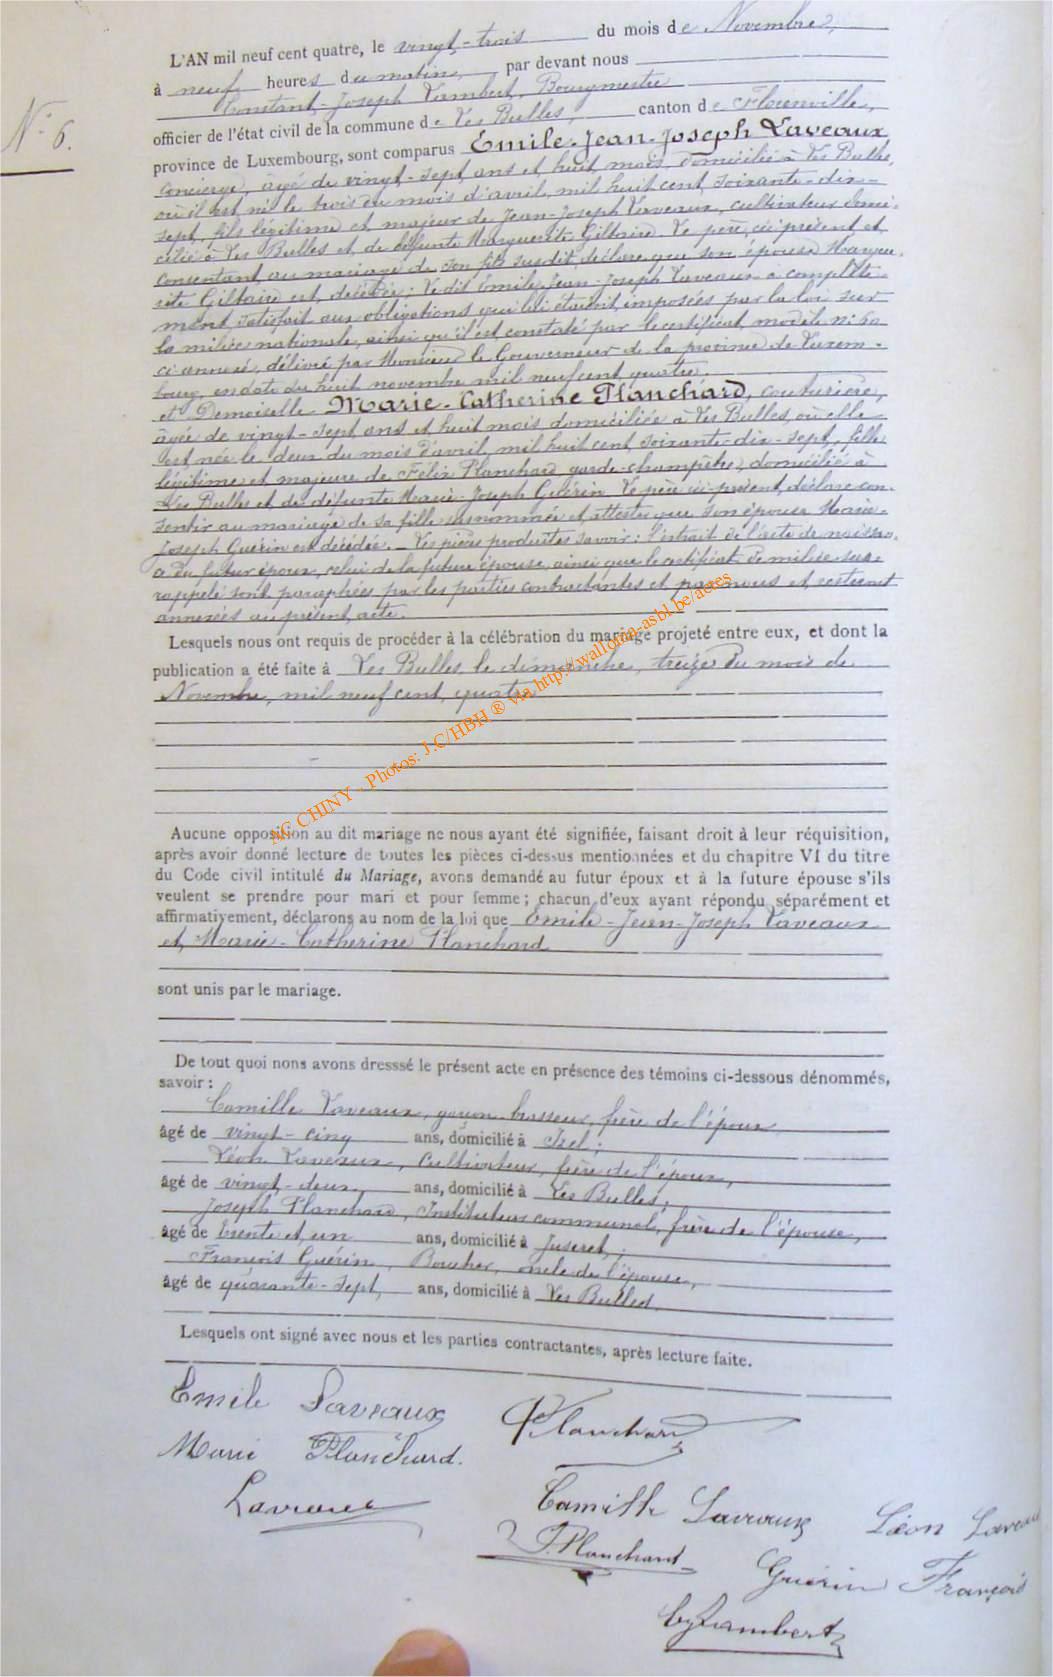 N° 6.
L'AN mil neuf cent quatre, le vingt-trois du mois de Novembre,
à neuf heures du matin, par devant nous
Constant-Joseph Lambert, Bourgmestre
officier de l'état civil de la commune de Les Bulles, canton de Florenville,
province de Luxembourg, sont comparus Emile-Jean-Joseph Laveaux
concierge, âgé de vingt-sept ans et huit mois, domicilié à Les Bulles,
où il est né le trois du mois d'avril, mil huit cent soixante-dix-
sept, fils légitime et majeur de Jean-Joseph Laveaux, cultivateur domi-
cilié à Les Bulles et de défunte Marguerite Giltaire. Le père, ici présent et
consentant au mariage de son fils susdit, déclare que son épouse Margue-
rite Giltaire est décédée; Le dit Emile-Jean-Joseph Laveaux a complète-
ment satisfait aux obligations qui lui étaient imposées par la loi sur
la milice nationale, ainsi qu'il est constaté par le certificat modèle n:
ci-annexé, délivré par Monsieur le Gouverneur de la province de Luxem-
bourg, en date du huit novembre mil neuf cent quatre.
et Demoiselle Marie-Catherine Planchard, couturière,
âgée de vingt-sept ans et huit mois domiciliée à Les Bulles, où elle
est née le deux du mois d'avril, mil huit cent soixante-dix-sept, fille
légitime et majeure de Félix Planchard garde-champêtre, domicilié à
Les Bulles et de défunte Marie-Joseph Guérin. Le père ici présent, déclare con-
sentir au mariage de sa fille susnommée et atteste que son épouse Marie-
Joseph Guérin est décédée. - Les pièces produites savoir: l'extrait de l'acte de naissan-
ce du futur époux, celui de la future épouse, ainsi que le certificat de milice sus-
rappelé sont paraphées par les parties contractantes et par nous et resteront
annexées au présent acte.
Lesquels nous ont requis de procéder à la célébration du mariage projeté entre eux, et dont la
publication a été faite à Les Bulles, le dimanche, treize du mois de
Novembre, mil neuf cent quatre
AC CHINY - Photos: J.C/HBH ® via http://wallonia-asbl.be/actes
Aucune opposition au dit mariage ne nous ayant été signifiée, faisant droit à leur réquisition,
après avoir donné lecture de toutes les pièces ci-dessus mentionnées et du chapitre VI du titre
du Code civil intitulé du Mariage, avons demandé au futur époux et à la future épouse s'ils
veulent se prendre pour mari et pour femme; chacun d'eux ayant répondu séparément et
affirmativement, déclarons au nom de la loi que Emile-Jean-Joseph Laveaux
et Marie-Catherine Planchard
sont unis par le mariage.
De tout quoi nons avons dresssé le présent acte en présence des témoins ci-dessous dénommés,
savoir:
Camille Laveaux, garçon brasseur, frère de l'époux
âgé de vingt-cinq ans, domicilié à Izel;
Léon Laveaux, Cultivateur, frère de l'époux,
âgé de vingt-deux ans, domicilié à Les Bulles,
Joseph Planchard, Instituteur communal, frère de l'épouse,
âgé de trente et un ans, domicilié à Juseret,
François Guérin, Boucher, oncle de l'épouse,
âgé de quarante-sept ans, domicilié à Les Bulles.
Lesquels ont signé avec nous et les parties contractantes, après lecture faite.
Emile Laveaux Planchard
Marie Planchard.
Laveaux Camille Laveaux Léon Laveaux
J. Planchard Guérin François
Lambert